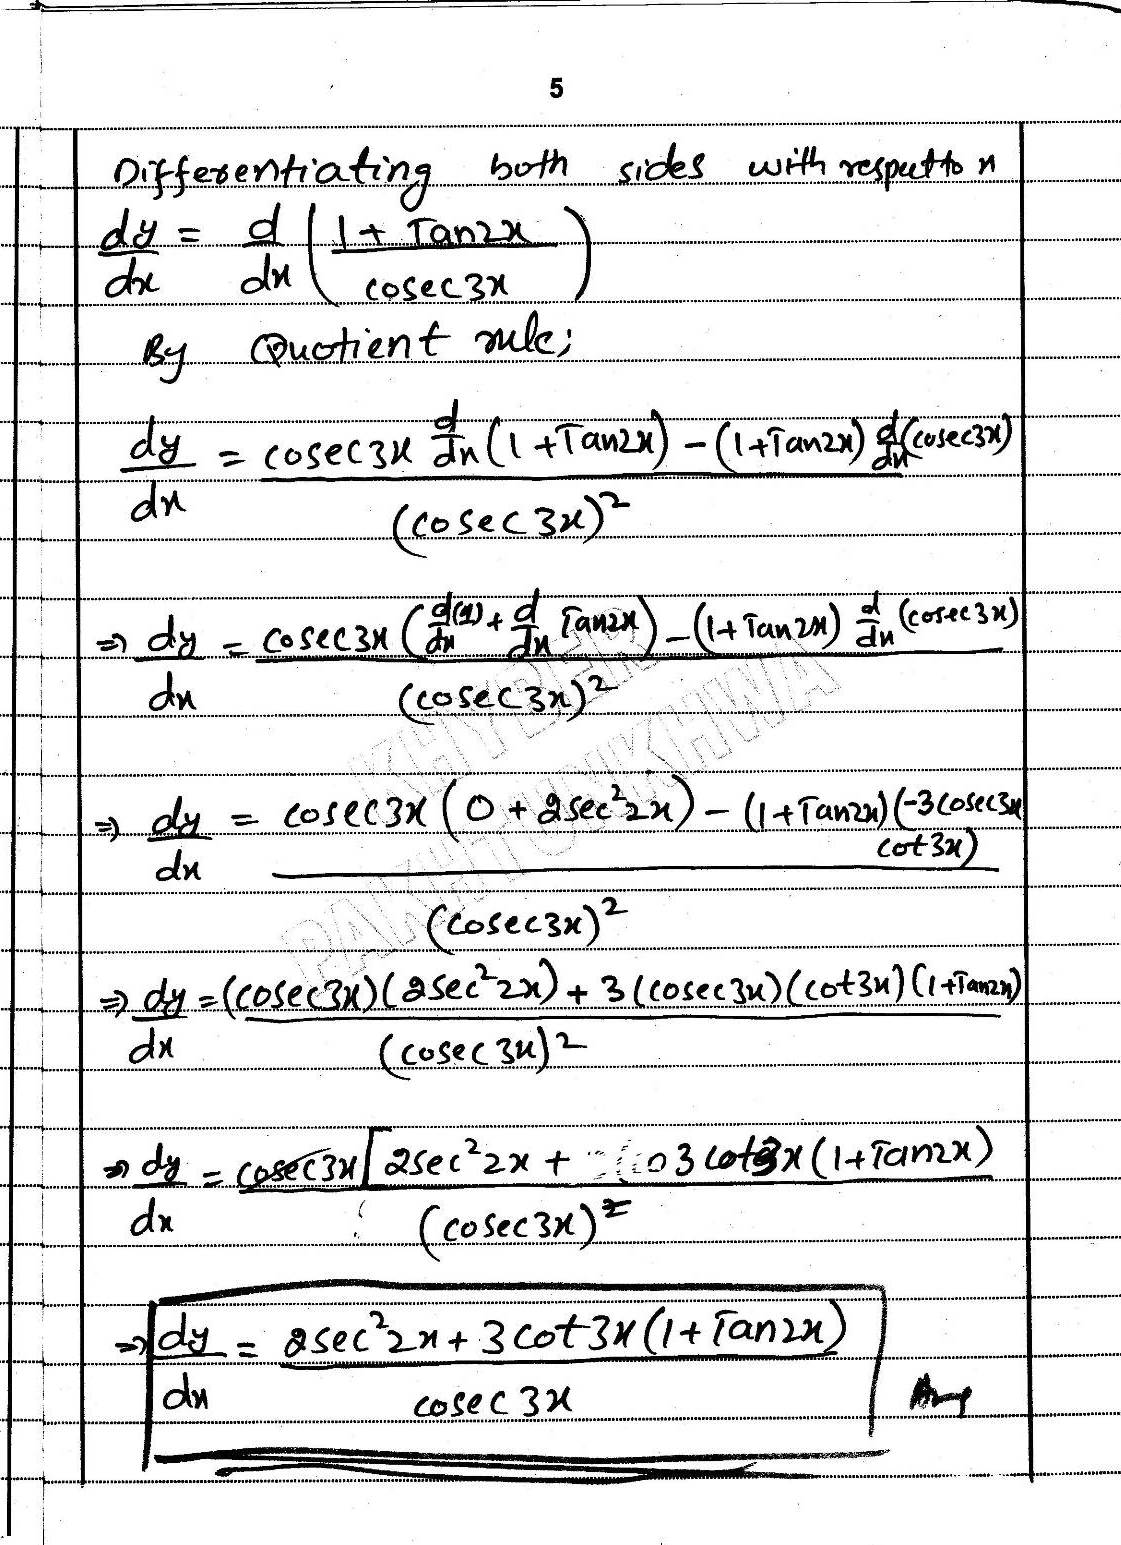 5
Differentiating both sides with respect to x
dy/dx = d/dx ( 1 + Tan2x / cosec3x )
By Quotient rule;
dy/dx = cosec3x d/dx (1 + Tan2x) - (1+Tan2x) d/dx (cosec3x) / (cosec3x)²
⇒ dy/dx = cosec3x ( d/dx (1) + d/dx Tan2x ) - (1+Tan2x) d/dx (cosec3x) / (cosec3x)²
⇒ dy/dx = cosec3x (0 + 2sec²2x) - (1+Tan2x) (-3cosec3x cot3x) / (cosec3x)²
⇒ dy/dx = (cosec3x)(2sec²2x) + 3(cosec3x)(cot3x)(1+Tan2x) / (cosec3x)²
⇒ dy/dx = cosec3x [ 2sec²2x + 3cot3x (1+Tan2x) / (cosec3x)²
⇒ dy/dx = 2sec²2x + 3cot3x (1+Tan2x) / cosec3x
Ans
KHYBER
PAKHTUNKHWA